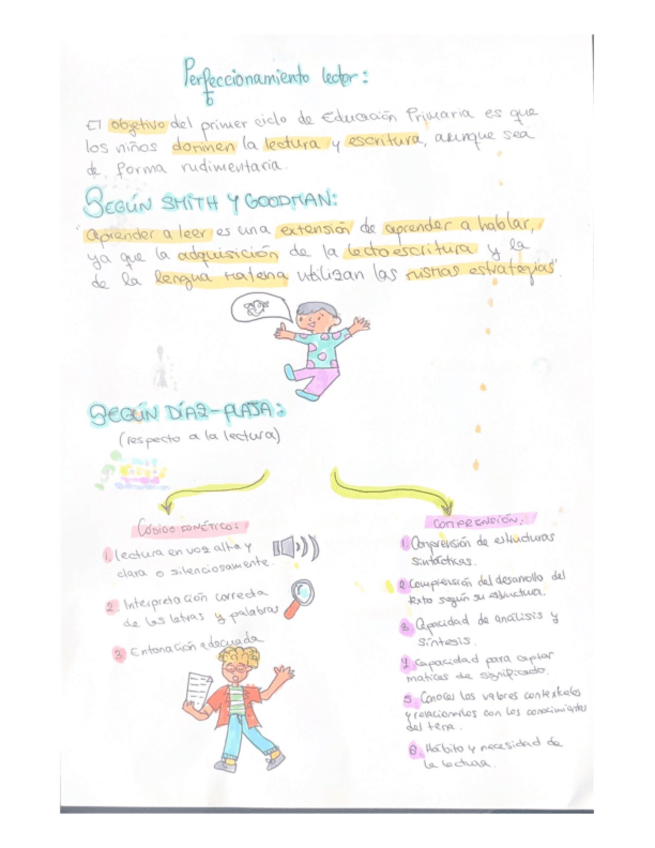 Perfeccionamiento lector:
El objetivo del primer ciclo de Educación Primaria es que
los niños dominen la lectura y escritura, aunque sea
de forma rudimentaria.
SEGÚN SMITH Y GOODMAN:
"aprender a leer es una extensión de aprender a hablar,
ya que la adquisición de la lectoescritura y la
de la lengua materna utilizan las mismas estrategias".
SEGÚN DÍAZ-PLAJA:
(respecto a la lectura)
CÓDIGO FONÉTICO:
1. Lectura en voz alta y
clara o silenciosamente.
2. Interpretación correcta
de las letras y palabras
3. Entonación adecuada
COMPRENSIÓN:
1. Comprensión de estructuras
sintácticas.
2. Comprensión del desarrollo del
texto según su estructura.
3. Capacidad de análisis y
síntesis.
4. Capacidad para captar
matices de significado.
5. Conocer los valores contextuales
y relacionarlos con los conocimientos
del tema.
6. Hábito y necesidad de
la lectura.